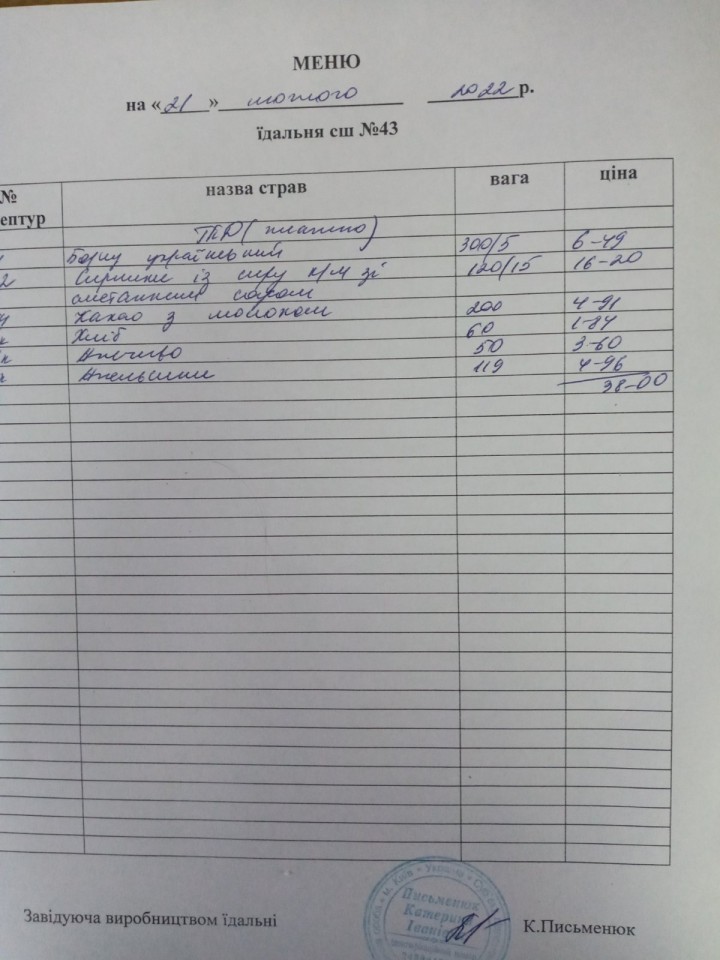 МЕНЮ
на «21» лютого 2022р.
їдальня сш №43
№ назва страв вага ціна
ептур
(платно)
Борщ український 300/5 6-49
2 Сирники із сиру н/м зі 120/15 16-20
сметанним соусом
4 Какао з молоком 200 4-91
к Хліб 60 1-84
к Печиво 50 3-60
к Апельсини 119 4-96
38-00
Завідуюча виробництвом їдальні К.Письменюк
м. Київ • Україна •
Письменюк
Катерина